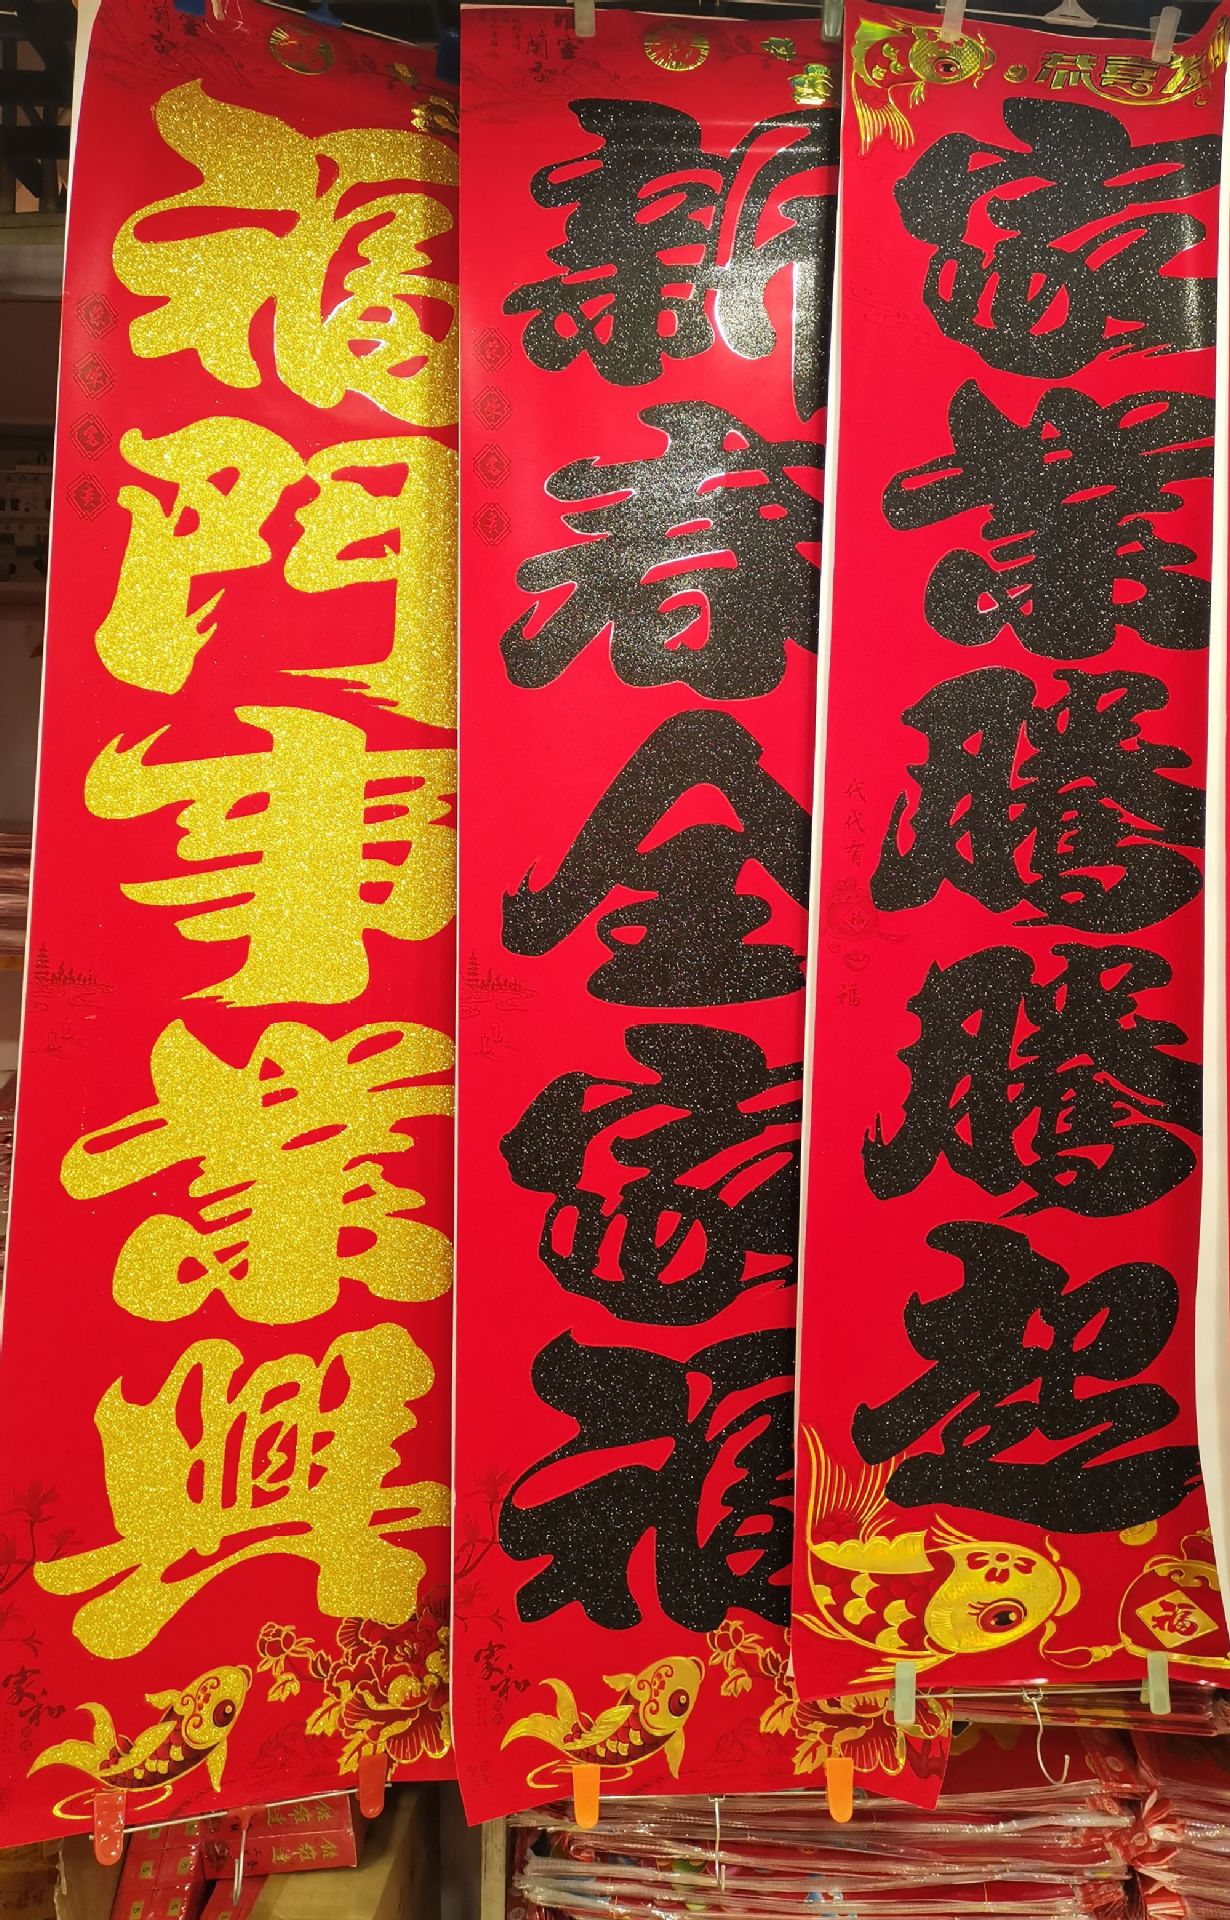 福門事業興
新春全家福
家業騰騰起
恭喜
代代有福
福
家和
福